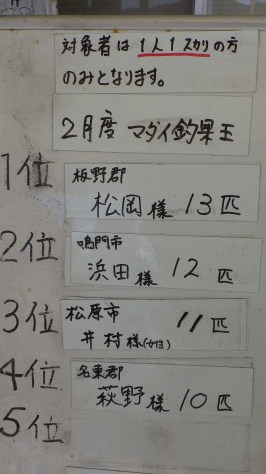 対象者は1人1スカリの方
のみとなります。
2月度 マダイ釣果王
1位 板野郡
松岡様 13匹
2位 鳴門市
浜田様 12匹
3位 松原市 11匹
井村様
4位 名東郡
萩野様 10匹
5位